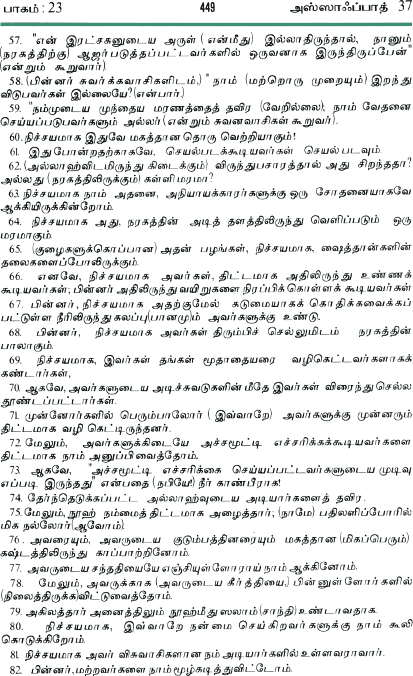 பாகம் : 23 449 அஸ்ஸாஃப்பாத் 37
57. "என் இரட்சகனுடைய அருள் (என்மீது) இல்லாதிருந்தால், நானும்
(நரகத்திற்கு) ஆஜர்படுத்தப்பட்டவர்களில் ஒருவனாக இருந்திருப்பேன்"
(என்றும் கூறுவார்).
58. (பின்னர் சுவர்க்கவாசிகளிடம்,) "நாம் (மற்றொரு முறையும்) இறந்து
விடுபவர்கள் இல்லையே? (என்பார்.)
59. "நம்முடைய முந்தைய மரணத்தைத் தவிர (வேறில்லை), நாம் வேதனை
செய்யப்படுபவர்களும் அல்லர் (என்றும் சுவனவாசிகள் கூறுவர்).
60. நிச்சயமாக இதுவே மகத்தான தொரு வெற்றியாகும்!
61. இது போன்றதற்காகவே, செயல்படக்கூடியவர்கள் செயல் படவும்.
62. (அல்லாஹ்விடமிருந்து கிடைக்கும்) விருந்துபசாரத்தால் அது சிறந்ததா?
அல்லது (நரகத்திலிருக்கும்) கள்ளி மரமா?
63. நிச்சயமாக நாம் அதனை, அநியாயக்காரர்களுக்கு ஒரு சோதனையாகவே
ஆக்கியிருக்கின்றோம்.
64. நிச்சயமாக அது, நரகத்தின் அடித் தளத்திலிருந்து வெளிப்படும் ஒரு
மரமாகும்.
65. (குழைகளுக்கொப்பான) அதன் பழங்கள், நிச்சயமாக, ஷைத்தான்களின்
தலைகளைப்போலிருக்கும்.
66. எனவே, நிச்சயமாக அவர்கள், திட்டமாக அதிலிருந்து உண்ணக்
கூடியவர்கள்; பின்னர் அதிலிருந்து வயிறுகளை நிரப்பிக் கொள்ளக் கூடியவர்கள்
67. பின்னர், நிச்சயமாக அதற்குமேல் கடுமையாகக் கொதிக்கவைக்கப்
பட்டுள்ள நீரிலிருந்து கலப்பு(பானமு)ம் அவர்களுக்கு உண்டு.
68. பின்னர், நிச்சயமாக அவர்கள் திரும்பிச் செல்லுமிடம் நரகத்தின்
பாலாகும்.
69. நிச்சயமாக, இவர்கள் தங்கள் மூதாதையரை வழிகெட்டவர்களாகக்
கண்டார்கள்,
70. ஆகவே, அவர்களுடைய அடிச்சுவடுகளின் மீதே இவர்கள் விரைந்து செல்ல
தூண்டப்பட்டார்கள்.
71. முன்னோர்களில் பெரும்பாலோர் (இவ்வாறே) அவர்களுக்கு முன்னரும்
திட்டமாக வழி கெட்டிருந்தனர்.
72. மேலும், அவர்களுக்கிடையே அச்சமூட்டி எச்சரிக்கக்கூடியவர்களை
திட்டமாக நாம் அனுப்பிவைத்தோம்.
73. ஆகவே, "அச்சமூட்டி எச்சரிக்கை செய்யப்பட்டவர்களுடைய முடிவு
எப்படி இருந்தது" என்பதை (நபியே!) நீர் காண்பீராக!
74. தேர்ந்தெடுக்கப்பட்ட அல்லாஹ்வுடைய அடியார்களைத் தவிர.
75. மேலும், நூஹ் நம்மைத் திட்டமாக அழைத்தார்; (நாமே) பதிலளிப்போரில்
மிக நல்லோர் (ஆவோம்).
76. அவரையும், அவருடைய குடும்பத்தினரையும் மகத்தான (மிகப்பெரும்)
கஷ்டத்திலிருந்து காப்பாற்றினோம்.
77. அவருடைய சந்ததியையே எஞ்சியுள்ளோராய் நாம் ஆக்கினோம்.
78. மேலும், அவருக்காக (அவருடைய கீர்த்தியை,) பின்னுள்ளோர்களில்
(நிலைத்திருக்க)விட்டுவைத்தோம்.
79. அகிலத்தார் அனைத்திலும் நூஹ்மீது ஸலாம் (சாந்தி) உண்டாவதாக.
80. நிச்சயமாக, இவ்வாறே நன்மை செய்கிறவர்களுக்கு நாம் கூலி
கொடுக்கிறோம்.
81. நிச்சயமாக அவர் விசுவாசிகளான நம் அடியார்களில் உள்ளவராவார்.
82. பின்னர், மற்றவர்களை நாம் மூழ்கடித்துவிட்டோம்.